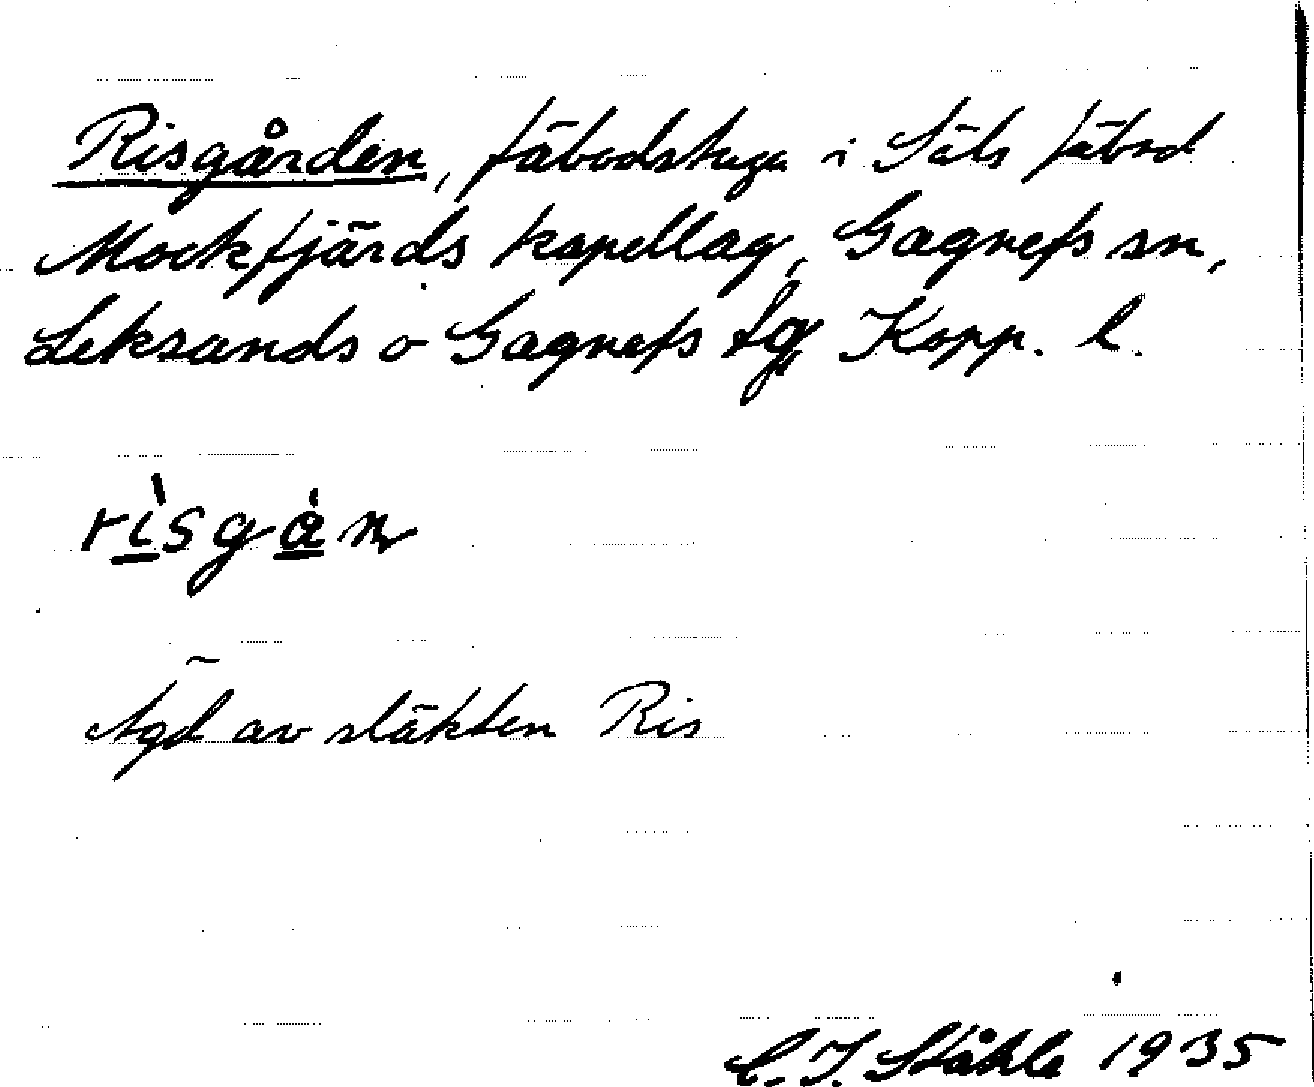 Risgården, fäbodstuga i Säls fäbod
Mockfjärds kapellag, Gagnefs sn,
Leksands o Gagnefs tg Kopp. l.
rìsgȧn
Ägd av släkten Ris
C. I. Ståhle 1935